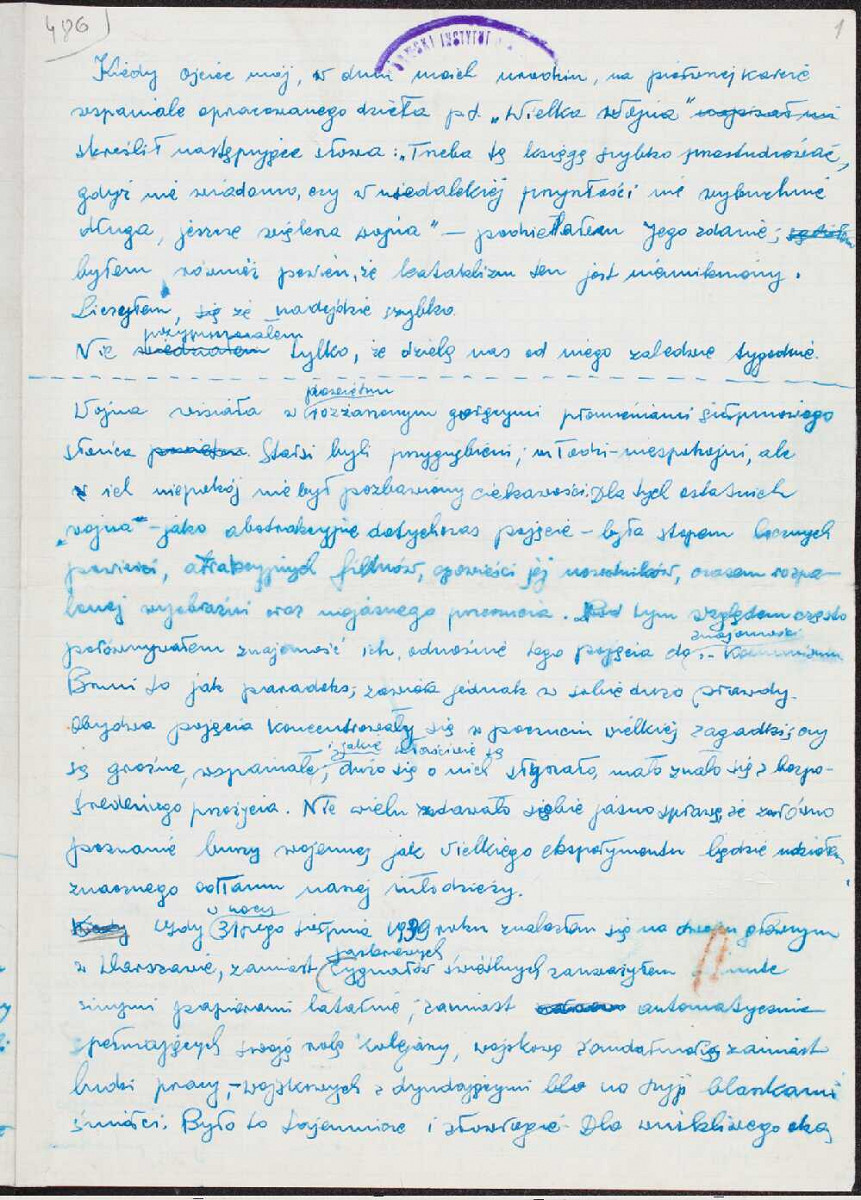 486
1
SKI INSTYTUT
Kiedy ojciec mój, w dniu moich urodzin, na pierwszej karcie
wspaniale opracowanego dzieła pd. „Wielka Wojna" napisał mi
skreślił następujące słowa: „Trzeba tę księgę szybko przestudiować,
gdyż nie wiadomo, czy w niedalekiej przyszłości nie wybuchnie
długa, jeszcze większa wojna" — podzielałem Jego zdanie;
byłem również pewien, że kataklizm ten jest nieunikniony.
Liczyłem się że nadejdzie szybko.
przypuszczałem
Nie wiedziałem tylko, że dzielą nas od niego zaledwie tygodnie.
powietrzu
Wojna wisiała w rozżarzonym gorącymi promieniami sierpniowego
słońca powietrzu. Starsi byli przygnębieni; młodzi - niespokojni, ale
ich niepokój nie był pozbawiony ciekawości. Dla tych ostatnich
„wojna" - jako abstrakcyjne dotychczas pojęcie - była stopem licznych
powieści, atrakcyjnych filmów, opowieści jej uczestników, czasem rozpa-
lonej wyobraźni oraz niejasnego przeczucia. Pod tym względem często
znajomości
porównywałem znajomość ich, odnośnie tego pojęcia do - Komunizmu
Brzmi to jak paradoks; zawiera jednak w sobie dużo prawdy.
Obydwa pojęcia koncentrowały się w poczuciu wielkiej zagadki; czy
i jakie właściwie są
są groźne, wspaniałe; dużo się o nich słyszało, mało znało się z bezpo-
średniego przeżycia. Nie wielu zdawało sobie jasno sprawę, że zarówno
poznanie burzy wojennej jak wielkiego eksperymentu będzie udziałem
znacznego odłamu naszej młodzieży.
w nocy
Kiedy Gdy 31-ego sierpnia 1939 roku znalazłem się na dworcu głównym
jaskrawych
w Warszawie, zamiast sygnałów świetlnych zauważyłem
sinymi papierami latarnie; zamiast automatycznie
spełniających swoją rolę kolejarzy, wojskową żandarmerię; zamiast
ludzi pracy, - wojskowych z dyndającymi na szyji blaszkami
śmierci. Było to tajemnicze i złowrogie. Dla wnikliwego oka